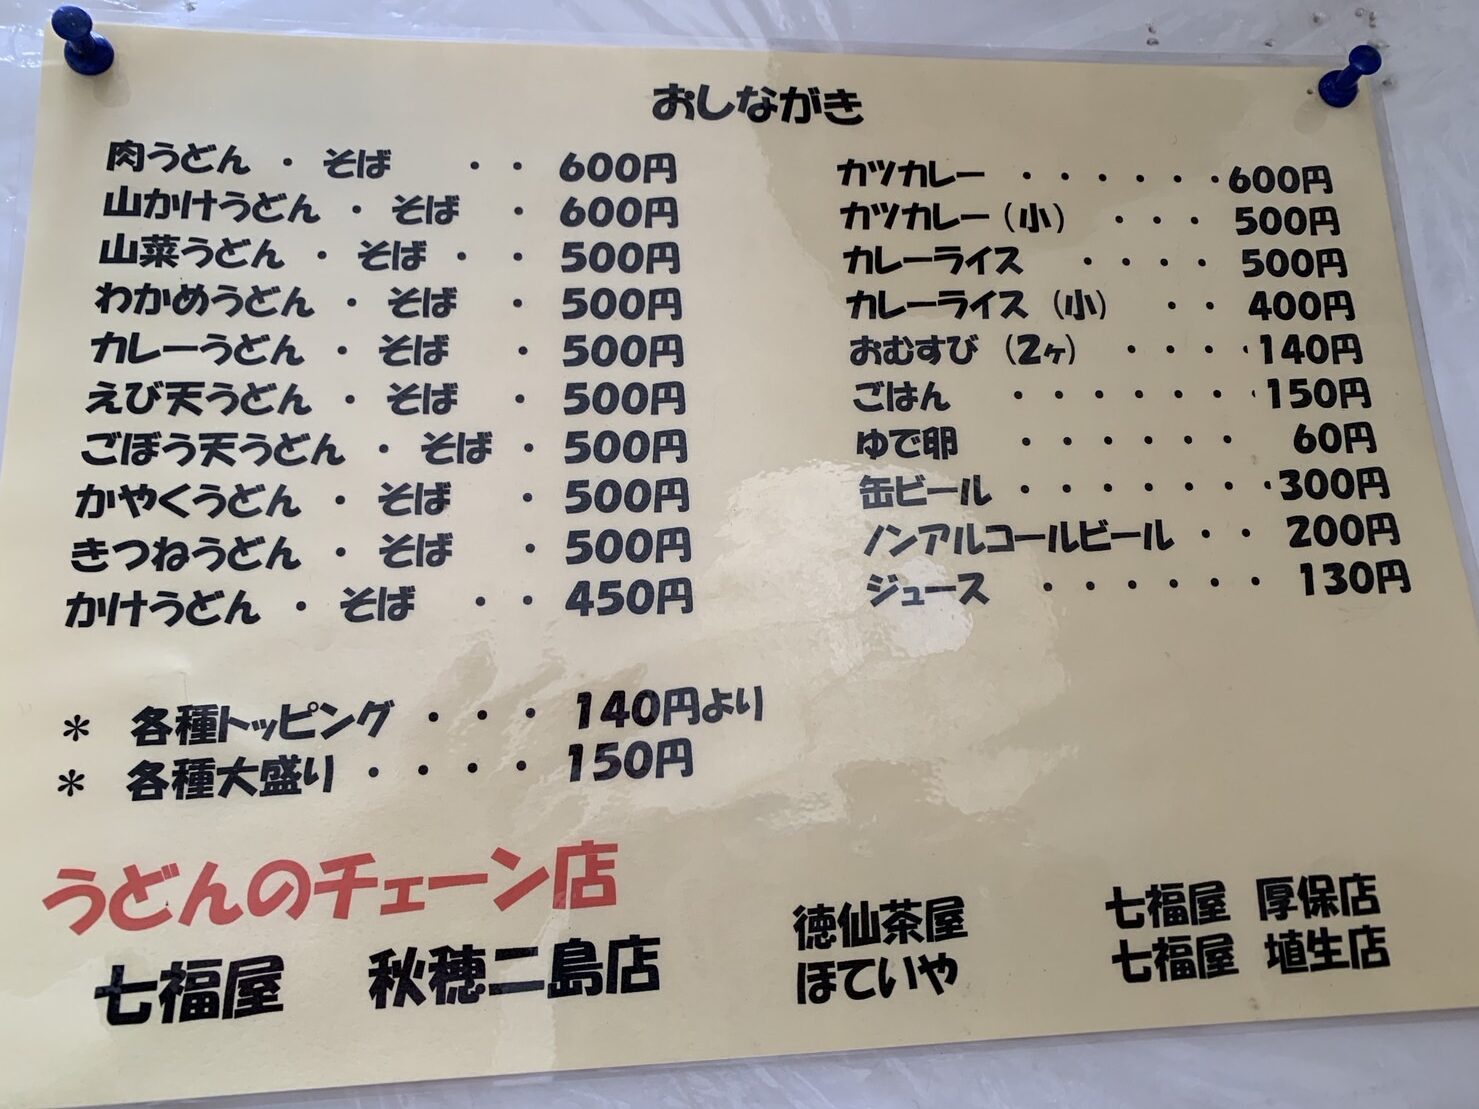 おしながき
肉うどん ・ そば ・・ 600円
山かけうどん ・ そば ・ 600円
山菜うどん ・ そば ・ ・ 500円
わかめうどん ・ そば ・ 500円
カレーうどん ・ そば ・ 500円
えび天うどん ・ そば ・ 500円
ごぼう天うどん ・ そば ・ 500円
かやくうどん ・ そば ・ 500円
きつねうどん ・ そば ・ 500円
かけうどん ・ そば ・・ 450円
カツカレー ・・・・・・600円
カツカレー（小） ・・・ 500円
カレーライス ・・・・ 500円
カレーライス（小） ・・ 400円
おむすび（2ヶ） ・・・・140円
ごはん ・・・・・・・150円
ゆで卵 ・・・・・・ 60円
缶ビール ・・・・・・・300円
ノンアルコールビール ・・ 200円
ジュース ・・・・・・ 130円
＊ 各種トッピング ・・・ 140円より
＊ 各種大盛り ・・・・ 150円
うどんのチェーン店
七福屋 秋穂二島店
徳仙茶屋
ほていや
七福屋 厚保店
七福屋 埴生店